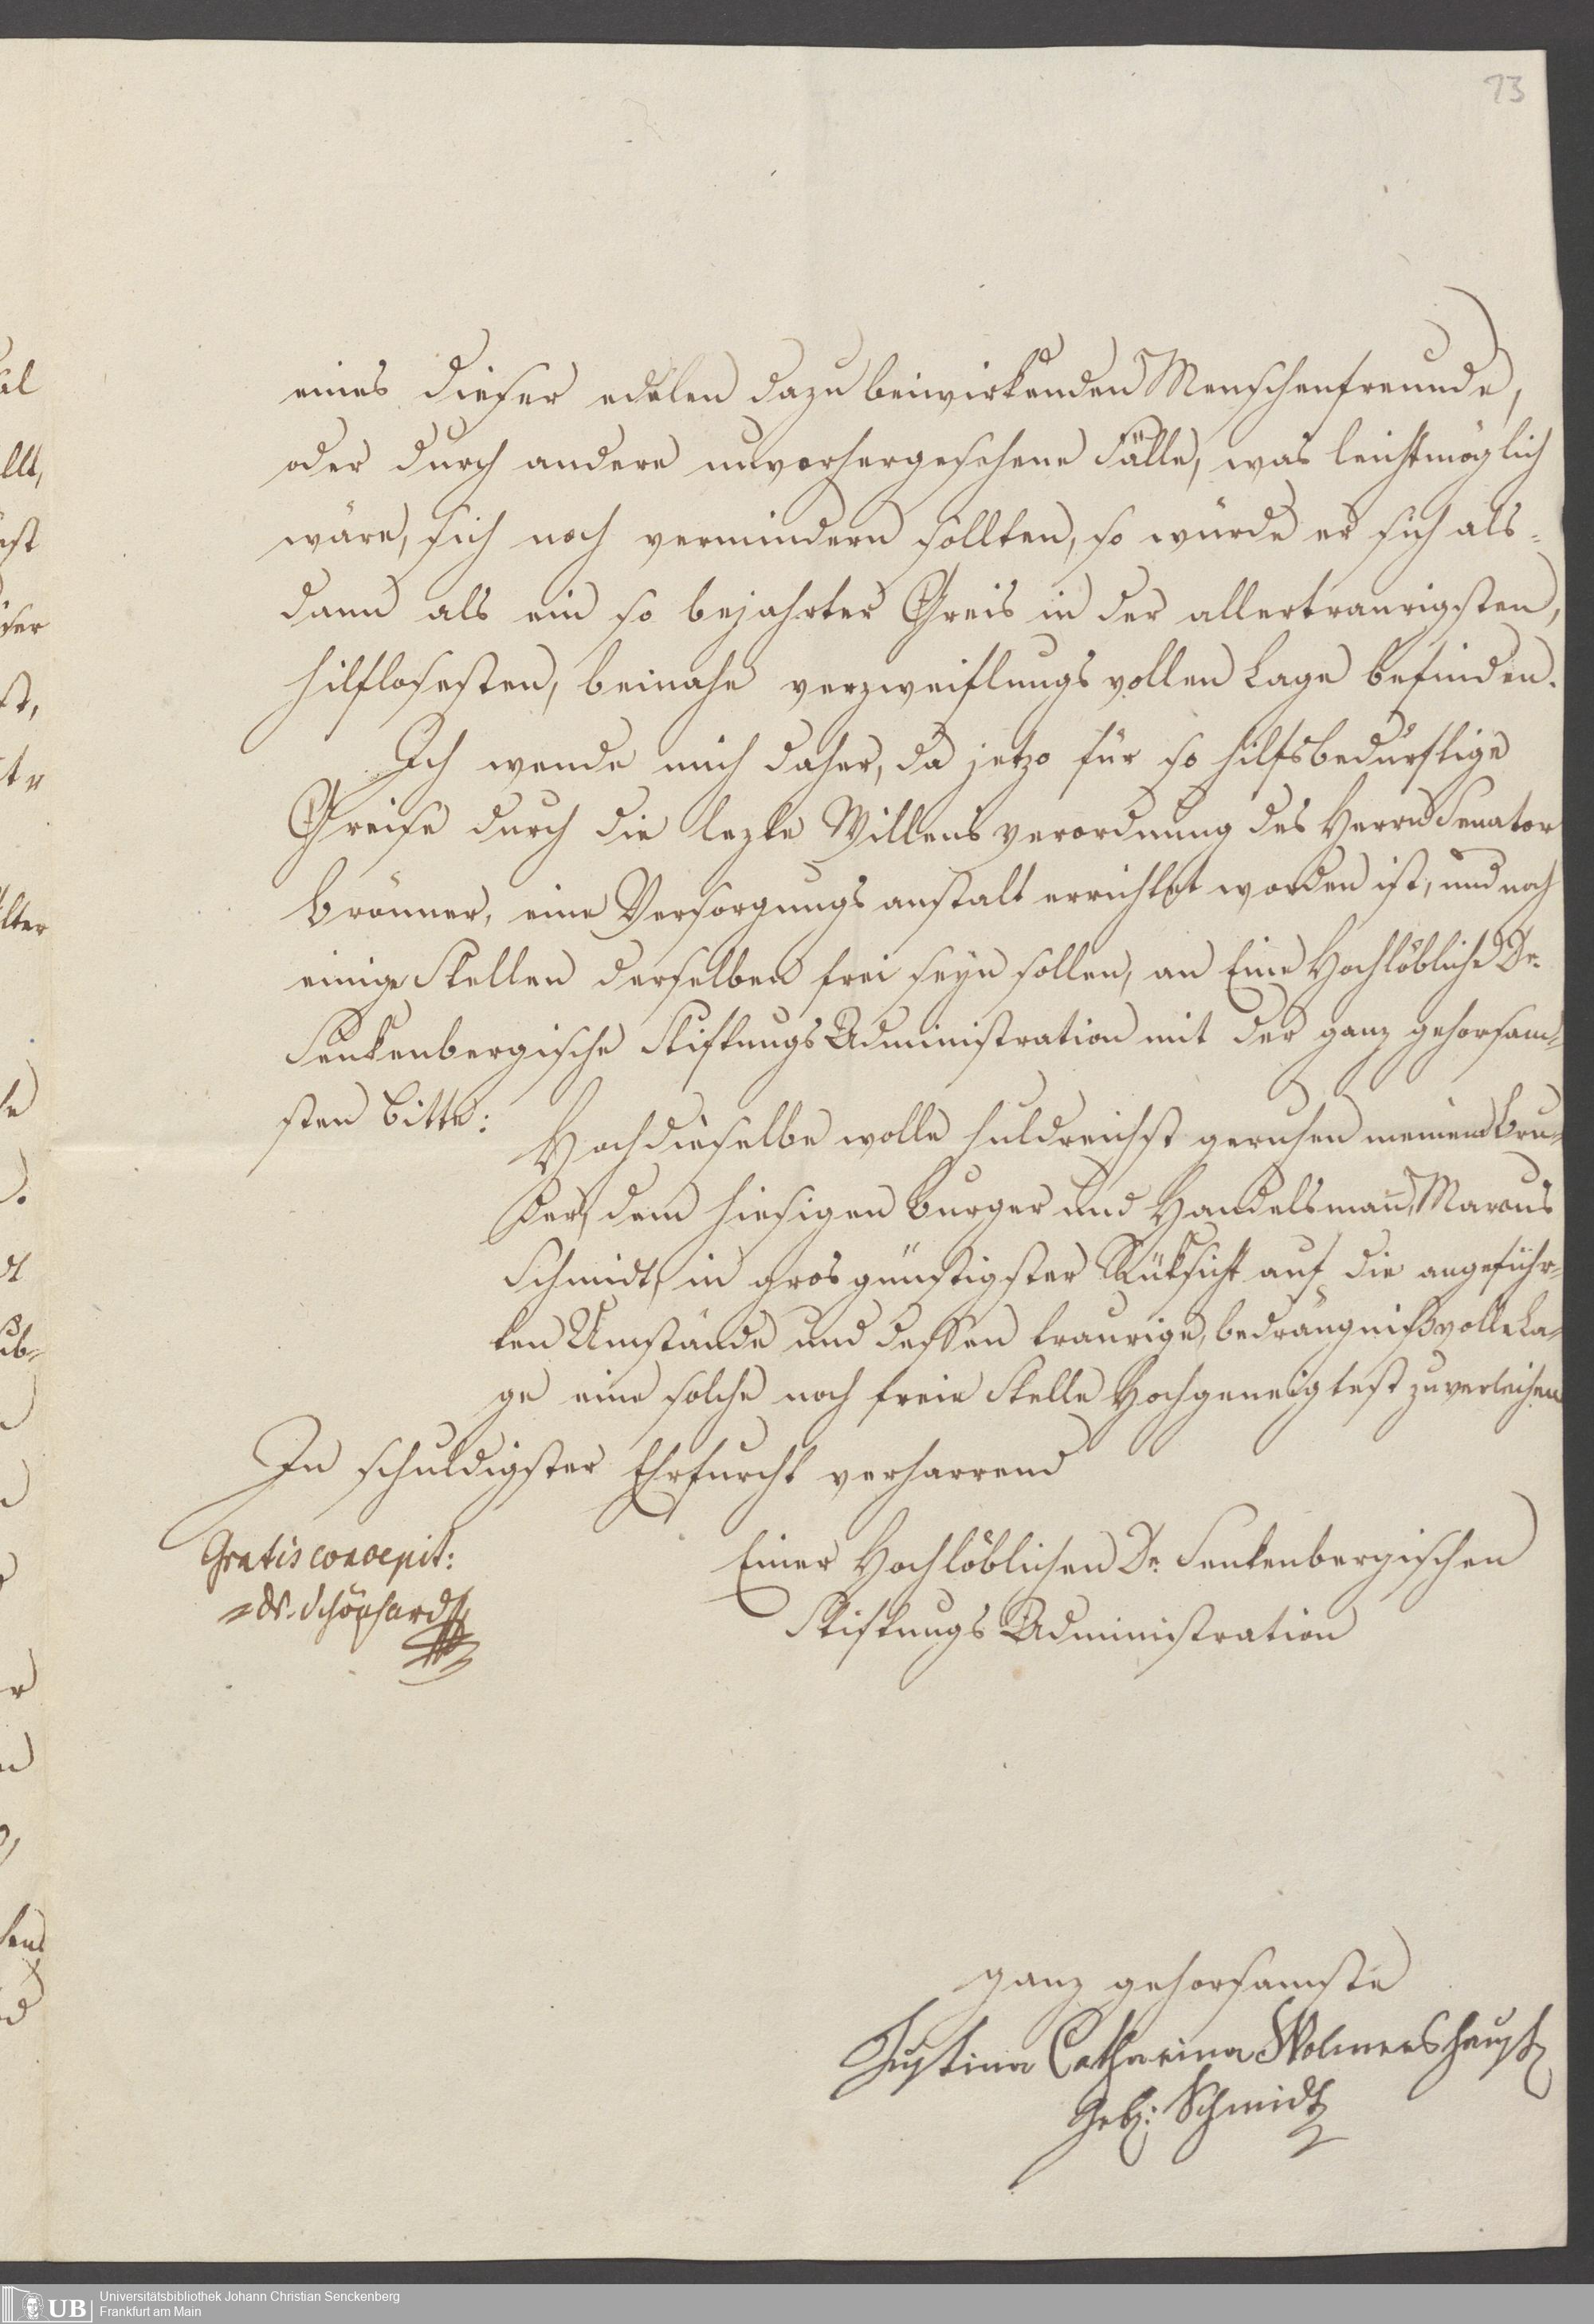 13
eines dieser edelen dazu beiwirkenden Menschenfreunde,
oder durch andere unvorhergesehene Fälle, was leichtmöglich
wäre, sich noch vermindern sollten, so würde er sich als-
dann als ein so bejahrter Greis in der allertraurigsten,
hilflosesten, beinahe verzweiflungsvollen Lage befinden.
Ich wende mich daher, da jetzo für so hilfsbedürftige
Greise durch die lezte Willensverordnung des Herrn Senator
Brönner, eine Versorgungsanstalt errichtet worden ist, und noch
einige Stellen derselben frei seyn sollen, an Eine Hochlöbliche Dr.
Senkenbergische Stiftungs Administration mit der ganz gehorsam-
sten Bitte:
Hochdieselbe wolle huldreichst geruhen meinem Bru-
der, dem hiesigen Burger und Handelsmann, Marcus
Schmidt, in grosgünstigster Rüksicht auf die angeführ-
ten Umstände und dessen traurige, bedrängnißvolle La-
ge eine solche noch freie Stelle Hochgeneigtest zu verleihen
In schuldigster Ehrfurcht verharrend
Gratis concepit:
Dr. Schönhardt
Einer Hochlöblichen Dr. Senkenbergischen
Stiftungs Administration
ganz gehorsamste
Justina Catharina Wolmershaupt
Geb: Schmidt
UB
Universitätsbibliothek Johann Christian Senckenberg
Frankfurt am Main